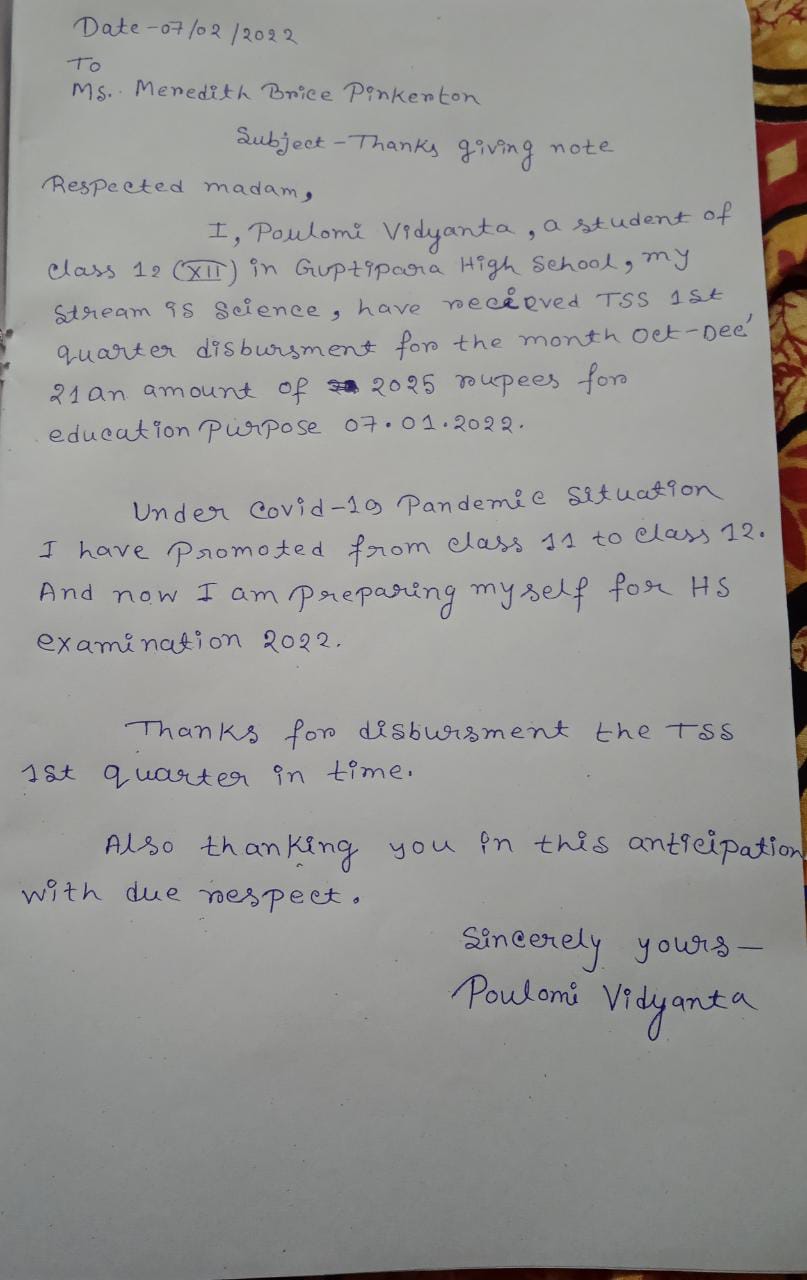 Date-07/02/2022
To
Ms. Meredith Brice Pinkerton
Subject-Thanks giving note
Respected madam,
I, Poulomi Vidyanta, a student of
class 12 (XII) in Guptipara High School, my
stream is science, have recieved TSS 1st
quarter disbursment for the month Oct-Dec'
21 an amount of 2025 rupees for
education purpose 07.01.2022.
Under Covid-19 Pandemic situation
I have promoted from class 11 to class 12.
And now I am preparing myself for HS
examination 2022.
Thanks for disbursment the TSS
1st quarter in time.
Also thanking you in this anticipation
with due respect.
Sincerely yours-
Poulomi Vidyanta